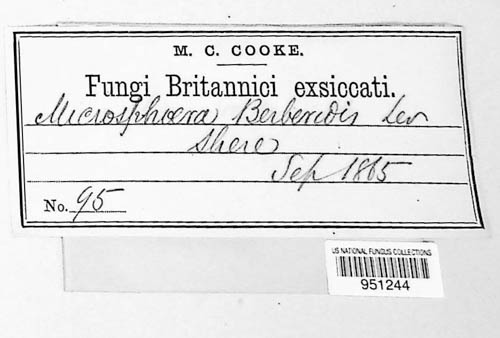 M. C. COOKE.
Fungi Britannici exsiccati.
Microsphœra Berberidis Lev
Shere
Sep 1865
No. 95
US NATIONAL FUNGUS COLLECTIONS
951244